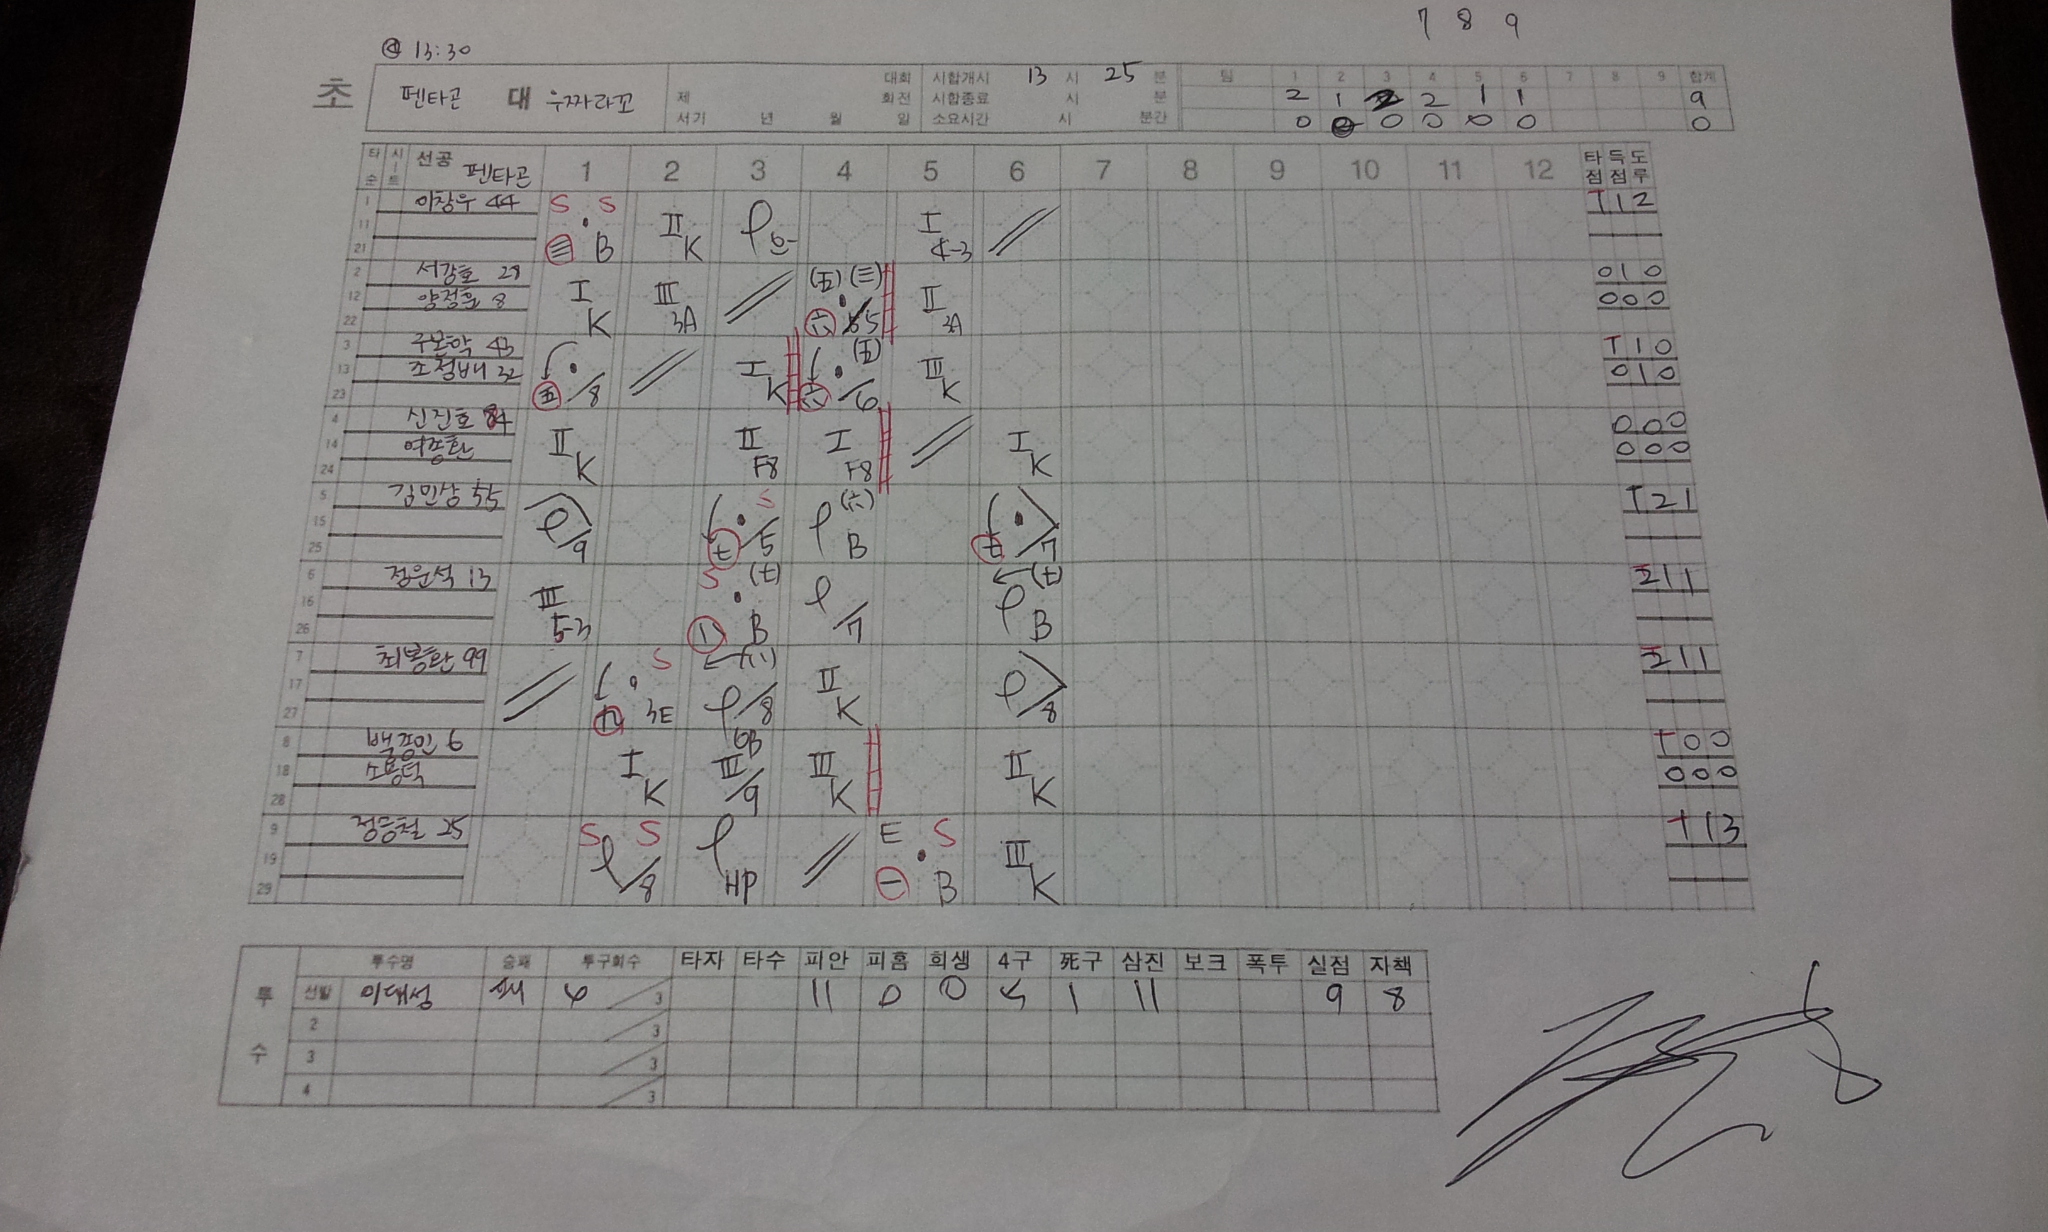 7 8 9
13:30
초 펜타곤 대 우짜라꼬 대회 시합개시 13 시 25 분 팀 1 2 3 4 5 6 7 8 9 합계
제 회전 시합종료 시 분 2 1 2 2 1 1 9
서기 년 월 일 소요시간 시 분간 0 0 0 0 0 0 0
타순 시트 선공 펜타곤 1 2 3 4 5 6 7 8 9 10 11 12 타점 득점 도루
1 이창우 44 S S T 1 2
11 B II K 6- I 4-3
21
2 서강호 29 (五) (三) 0 1 0
12 양정훈 8 I K III 3A 六 5 II 3A 0 0 0
22
3 43 (五) T 1 0
13 조정배 32 五 /8 I K 六 /6 III K 0 1 0
23
4 신진호 84 0 0 0
14 여종환 II K II F8 I F8 I K 0 0 0
24
5 김민상 55 S (六) T 2 1
15 /9 七 /5 B 七 /7
25
6 정운석 13 S (七) (七) 2 1 1
16 III 5-3 B /7 B
26
7 최봉환 99 S 2 1 1
17 3E /8 II K /8
27
8 백종인 6 6B T 0 0
18 소봉덕 I K III /9 III K II K 0 0 0
28
9 정승철 25 S S E S T 1 3
19 /8 HP 一 B III K
29
투수 투수명 승패 투구회수 타자 타수 피안 피홈 희생 4구 死구 삼진 보크 폭투 실점 자책
선발 이대성 패 6 /3 11 0 0 5 1 11 9 8
2 /3
3 /3
4 /3